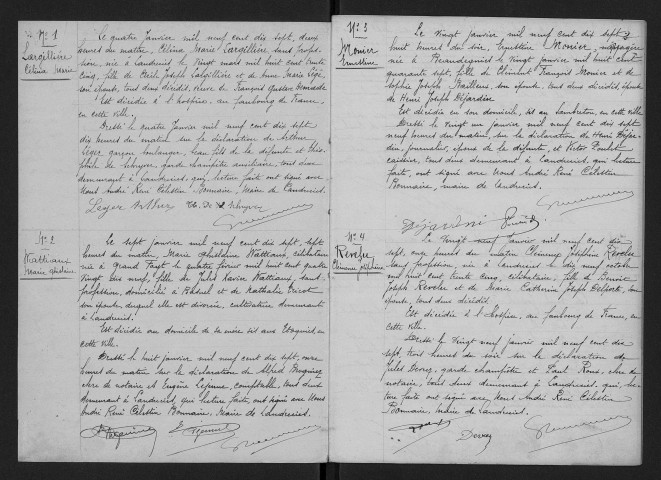 Nº 1
Largillière
Célina Marie
Le quatre Janvier mil neuf cent dix sept, deux
heures du matin, Célina Marie Largillière, sans profes-
sion, née à Landrecies le vingt mai mil huit cent trente
cinq, fille de Joseph Largillière et de
son épouse, tous deux décédés, veuve de François Gustave
est décédée à l'hospice, au faubourg de France,
en cette ville.
Dressé le quatre Janvier mil neuf cent dix sept,
dix heures du matin, sur la déclaration de Arthur
Leger, garçon boulanger, fils de la défunte et Théo-
phile de Schuyver, garde champêtre auxiliaire, tous deux
demeurant à Landrecies, qui, lecture faite ont signé avec
Nous André René Célestin Bonnaire, Maire de Landrecies.
Leger Arthur
Nº 2
Wattiaux
Marie Ghislaine
Le sept janvier mil neuf cent dix sept, sept
heures du matin, Marie Ghislaine Wattiaux, célibataire
née à Grand Fayt le quatre février mil huit cent quatre
vingt dix neuf, fille de Jules Xavier Wattiaux sans
profession, domicilié à et de Nathalie Tricot
son épouse, duquel elle est divorcée, cultivatrice demeurant
à Landrecies.
Est décédée au domicile de sa mère sis aux Etoquies, en
cette ville.
Dressé le huit janvier mil neuf cent dix sept, onze
heures du matin sur la déclaration de Alfred
clerc de notaire et Eugène Lejeune, comptable, tous deux
demeurant à Landrecies, qui lecture faite, ont signé avec Nous
André René Célestin Bonnaire, Maire de Landrecies.
Nº 3
Monier
Ernestine
Le vingt janvier mil neuf cent dix sept
huit heures du soir, Ernestine Monier, ménagère
née à le vingt janvier mil huit cent
quarante sept, fille de Clément François Monier et de
Sophie Joseph son épouse, tous deux décédés, épouse
de Henri Joseph Déjardin
Est décédée en son domicile, sis au en cette ville
Dressé le vingt un janvier mil neuf cent dix sept
neuf heures du matin, sur la déclaration de Henri Déjar-
din, journalier, époux de la défunte, et Victor
caissier, tous deux demeurant à Landrecies, qui lecture
faite, ont signé avec Nous André René Célestin
Bonnaire, maire de Landrecies.
Déjardin
Nº 4
Revelu
Clémence Joséphine
Le vingt neuf janvier mil neuf cent dix
sept, onze heures du matin Clémence Joséphine Revelu
sans profession, née à Landrecies le dix octobre
mil huit cent trente cinq, célibataire, fille de
Joseph Revelu et de Marie Catherine Joseph son
épouse, tous deux décédés.
Est décédée à l'Hospice, au faubourg de France, en
cette ville.
Dressé le vingt neuf janvier mil neuf cent dix
sept, trois heures du soir sur la déclaration de
Jules garde champêtre et Paul Roux, clerc de
notaire, tous deux demeurant à Landrecies, qui, lec-
ture faite ont signé avec Nous André René Célestin
Bonnaire, Maire de Landrecies.